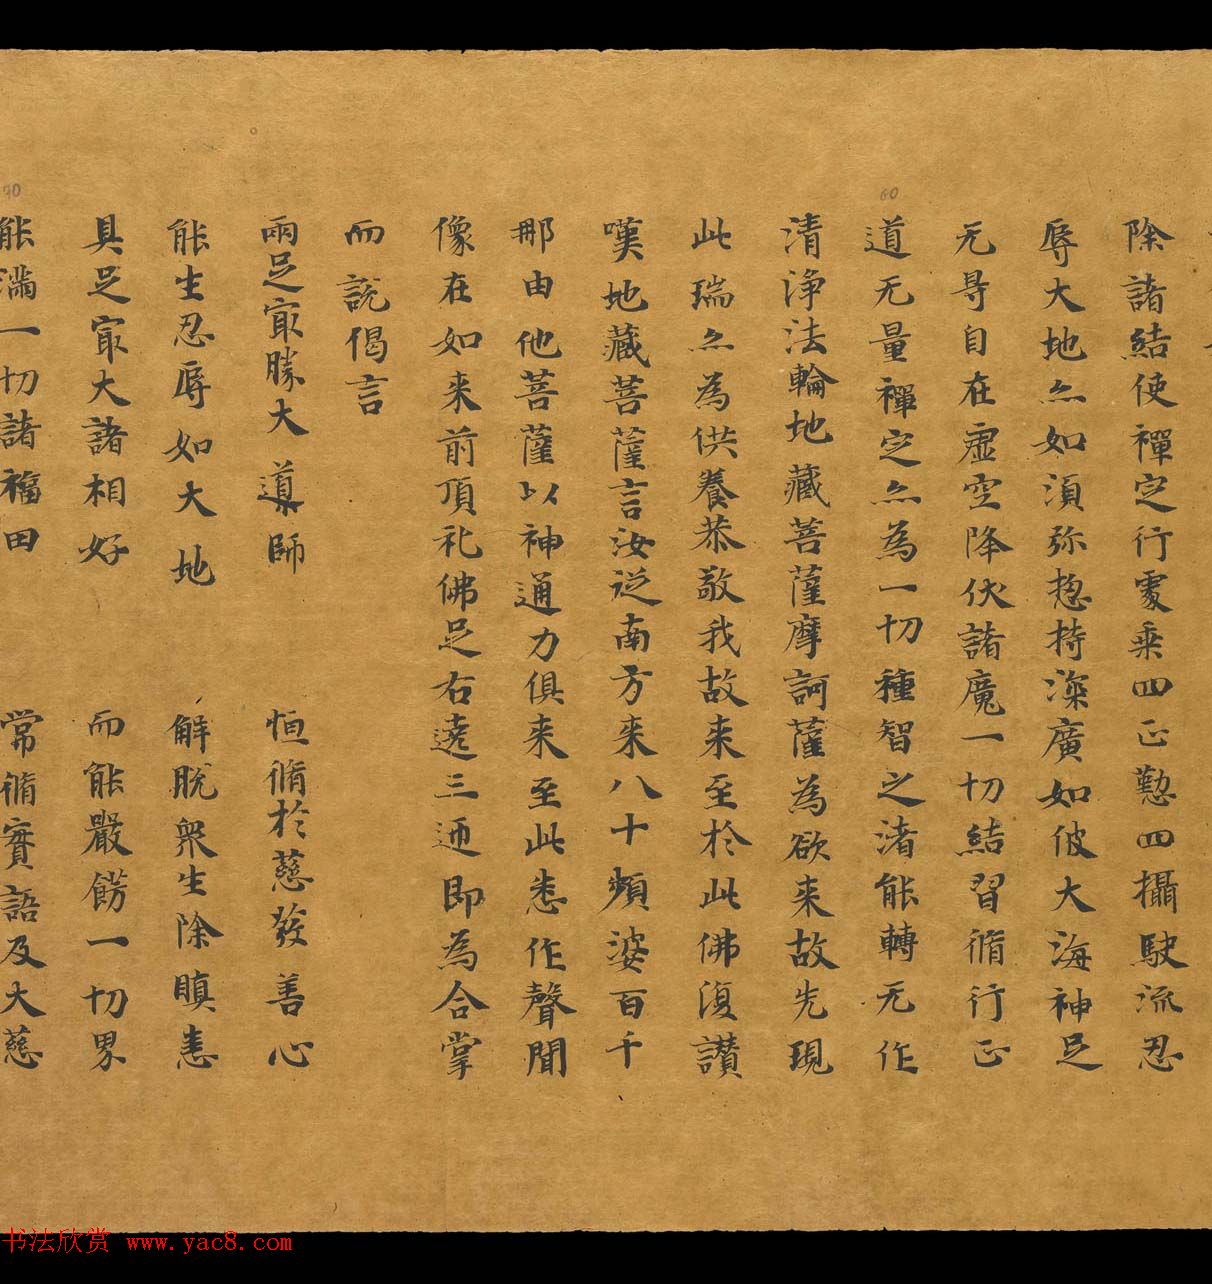 60
70
除諸結使禪定行處乘四正懃四攝駛流忍
辱大地亦如須弥揔持深廣如彼大海神足
无㝵自在虛空降伏諸魔一切結習脩行正
道无量禪定亦為一切種智之渚能轉无作
清淨法輪地藏菩薩摩訶薩為欲來故先現
此瑞亦為供養恭敬我故來至於此佛復讃
嘆地藏菩薩言汝從南方來八十頻婆百千
那由他菩薩以神通力俱來至此悉作聲聞
像在如来前頂礼佛足右遶三迊即為合掌
而說偈言
兩足㝡勝大導師 恒脩於慈發善心
能生忍辱如大地 解脫衆生除瞋恚
具足㝡大諸相好 而能嚴餝一切界
能滿一切諸福田 常脩實語及大慈
书法欣赏 www.yac8.com